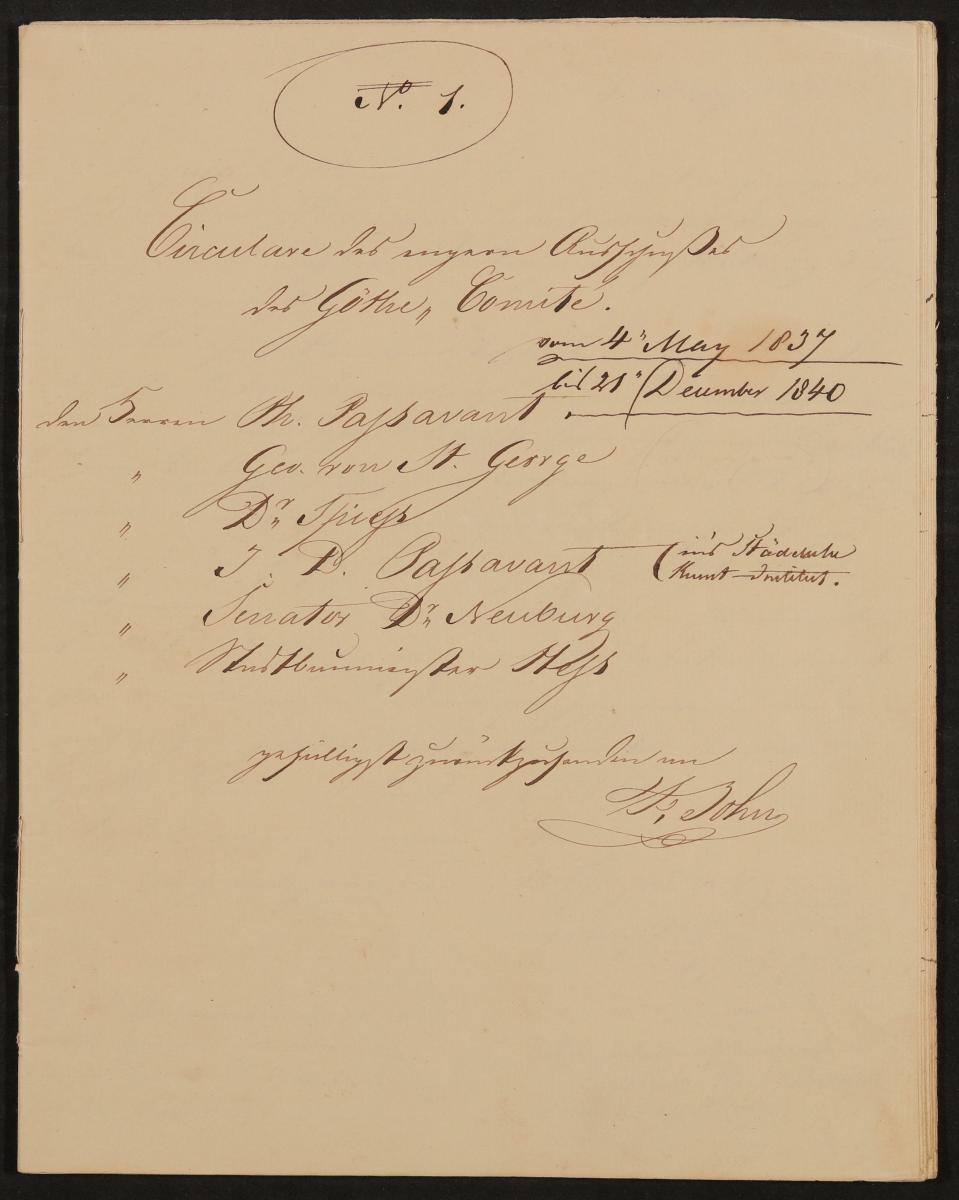 No. 1.
Circulare des engern Ausschußes
des Göthe„ Comité.
vom 4" May 1837
bis 21" December 1840
den Herren Ph. Passavant
" Geo. von St. George
" Dr. Spieß
" J. D. Passavant (in's Städelsche
Kunst-Institut.
" Senator Dr. Neuburg
" Stadtbaumeister Heß
gefälligst zurückzusenden an
John